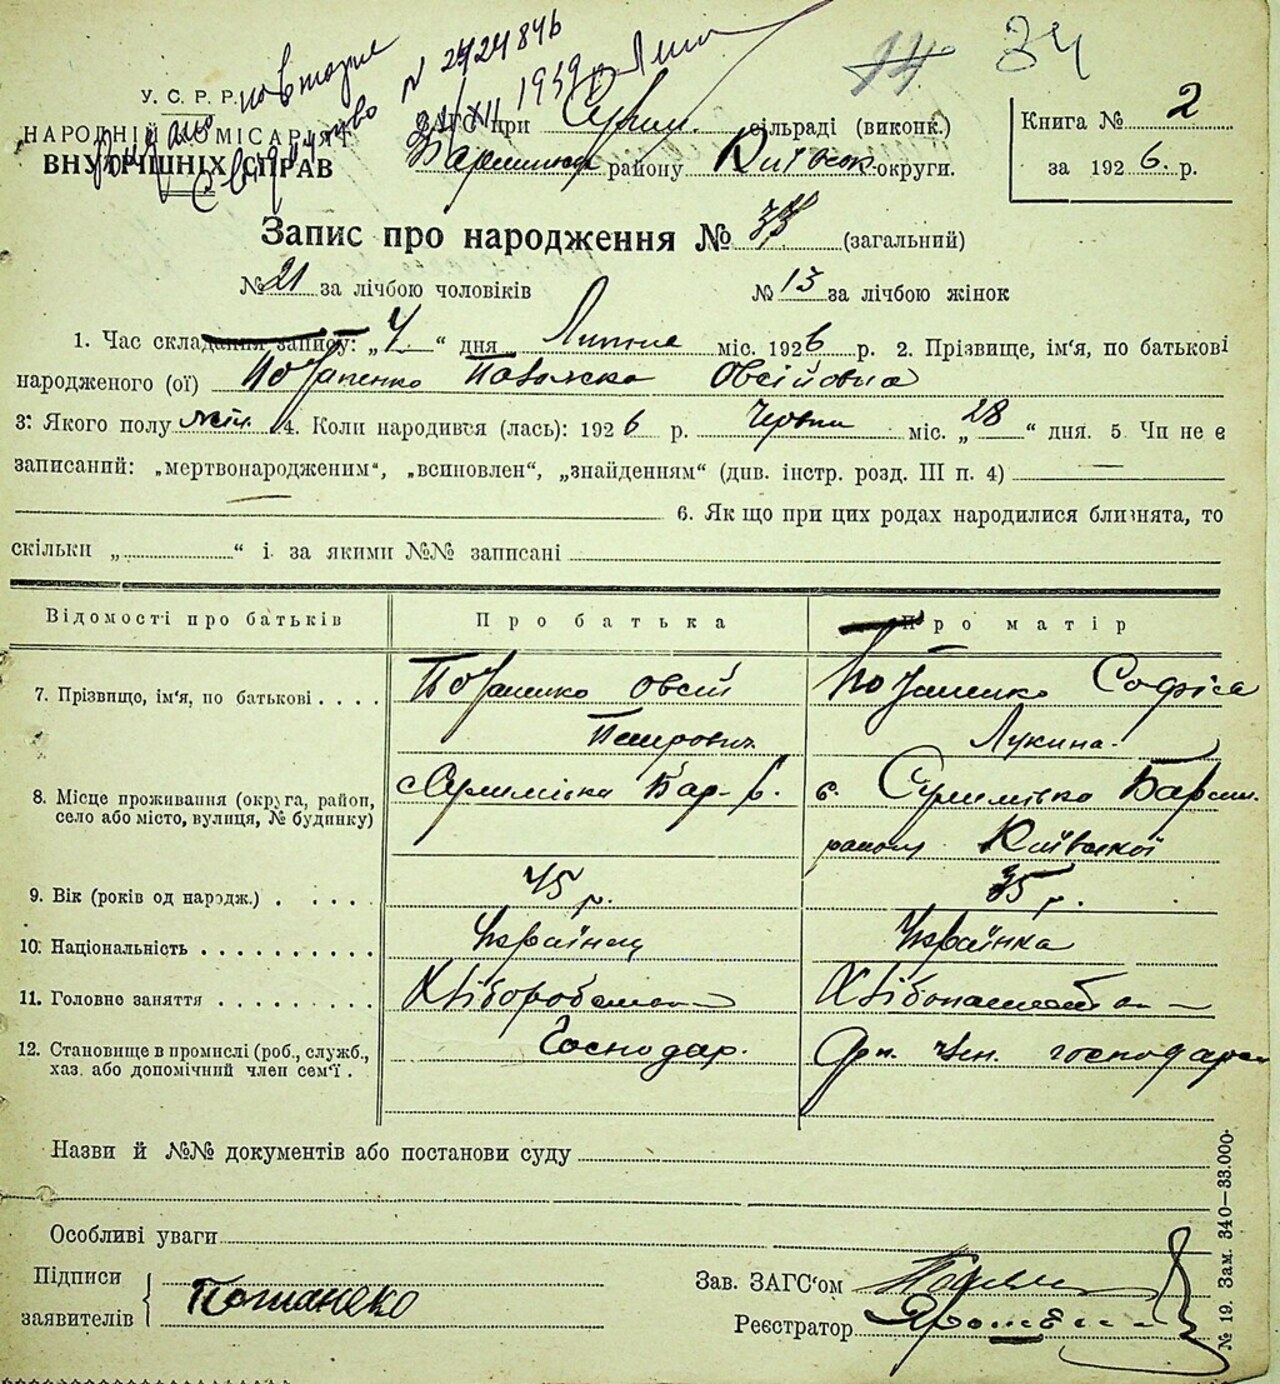 14 34
Видано повторне
свідоцтво № 2424846
31/XII 1939 р.
У. С. Р. Р.
НАРОДНІЙ КОМІСАРІЯТ
ВНУТРІШНІХ СПРАВ
ЗАГС при сільраді (виконк.)
району Київськ. округи.
Книга № 2
за 1926. р.
Запис про народження № 33 (загальний)
№ 21 за лічбою чоловіків № 13 за лічбою жінок
1. Час складання запису: „4“ дня Липня міс. 1926 р. 2. Прізвище, ім'я, по батькові
народженого (ої) Потапенко Овсійовна
3. Якого полу жін. 4. Коли народився (лась): 1926 р. Червня міс. „28“ дня. 5. Чи не є
записаний: „мертвонародженим“, „всиновлен“, „знайденням“ (див. інстр. розд. III п. 4)
6. Як що при цих родах народилися близнята, то
скільки „ “ і за якими №№ записані
Відомості про батьків Про батька Про матір
7. Прізвище, ім'я, по батькові . . . . Потапенко Овсій Потапенко Софія
Петрович Лукина
8. Місце проживання (округа, район, Бар. р. с.
село або місто, вулиця, № будинку) району Київської
9. Вік (років од народж.) . . . . . 45 р. 35 р.
10. Національність . . . . . . . . . . Українец Українка
11. Головне заняття . . . . . . . . . Хліборобство
12. Становище в промислі (роб., служб., Господар. господаря
хаз. або допомічний член сем'ї .
Назви й №№ документів або постанови суду
Особливі уваги
Підписи
заявителів Потапенко
Зав. ЗАГС'ом
Реєстратор
№ 19. Зам. 340—33.000.